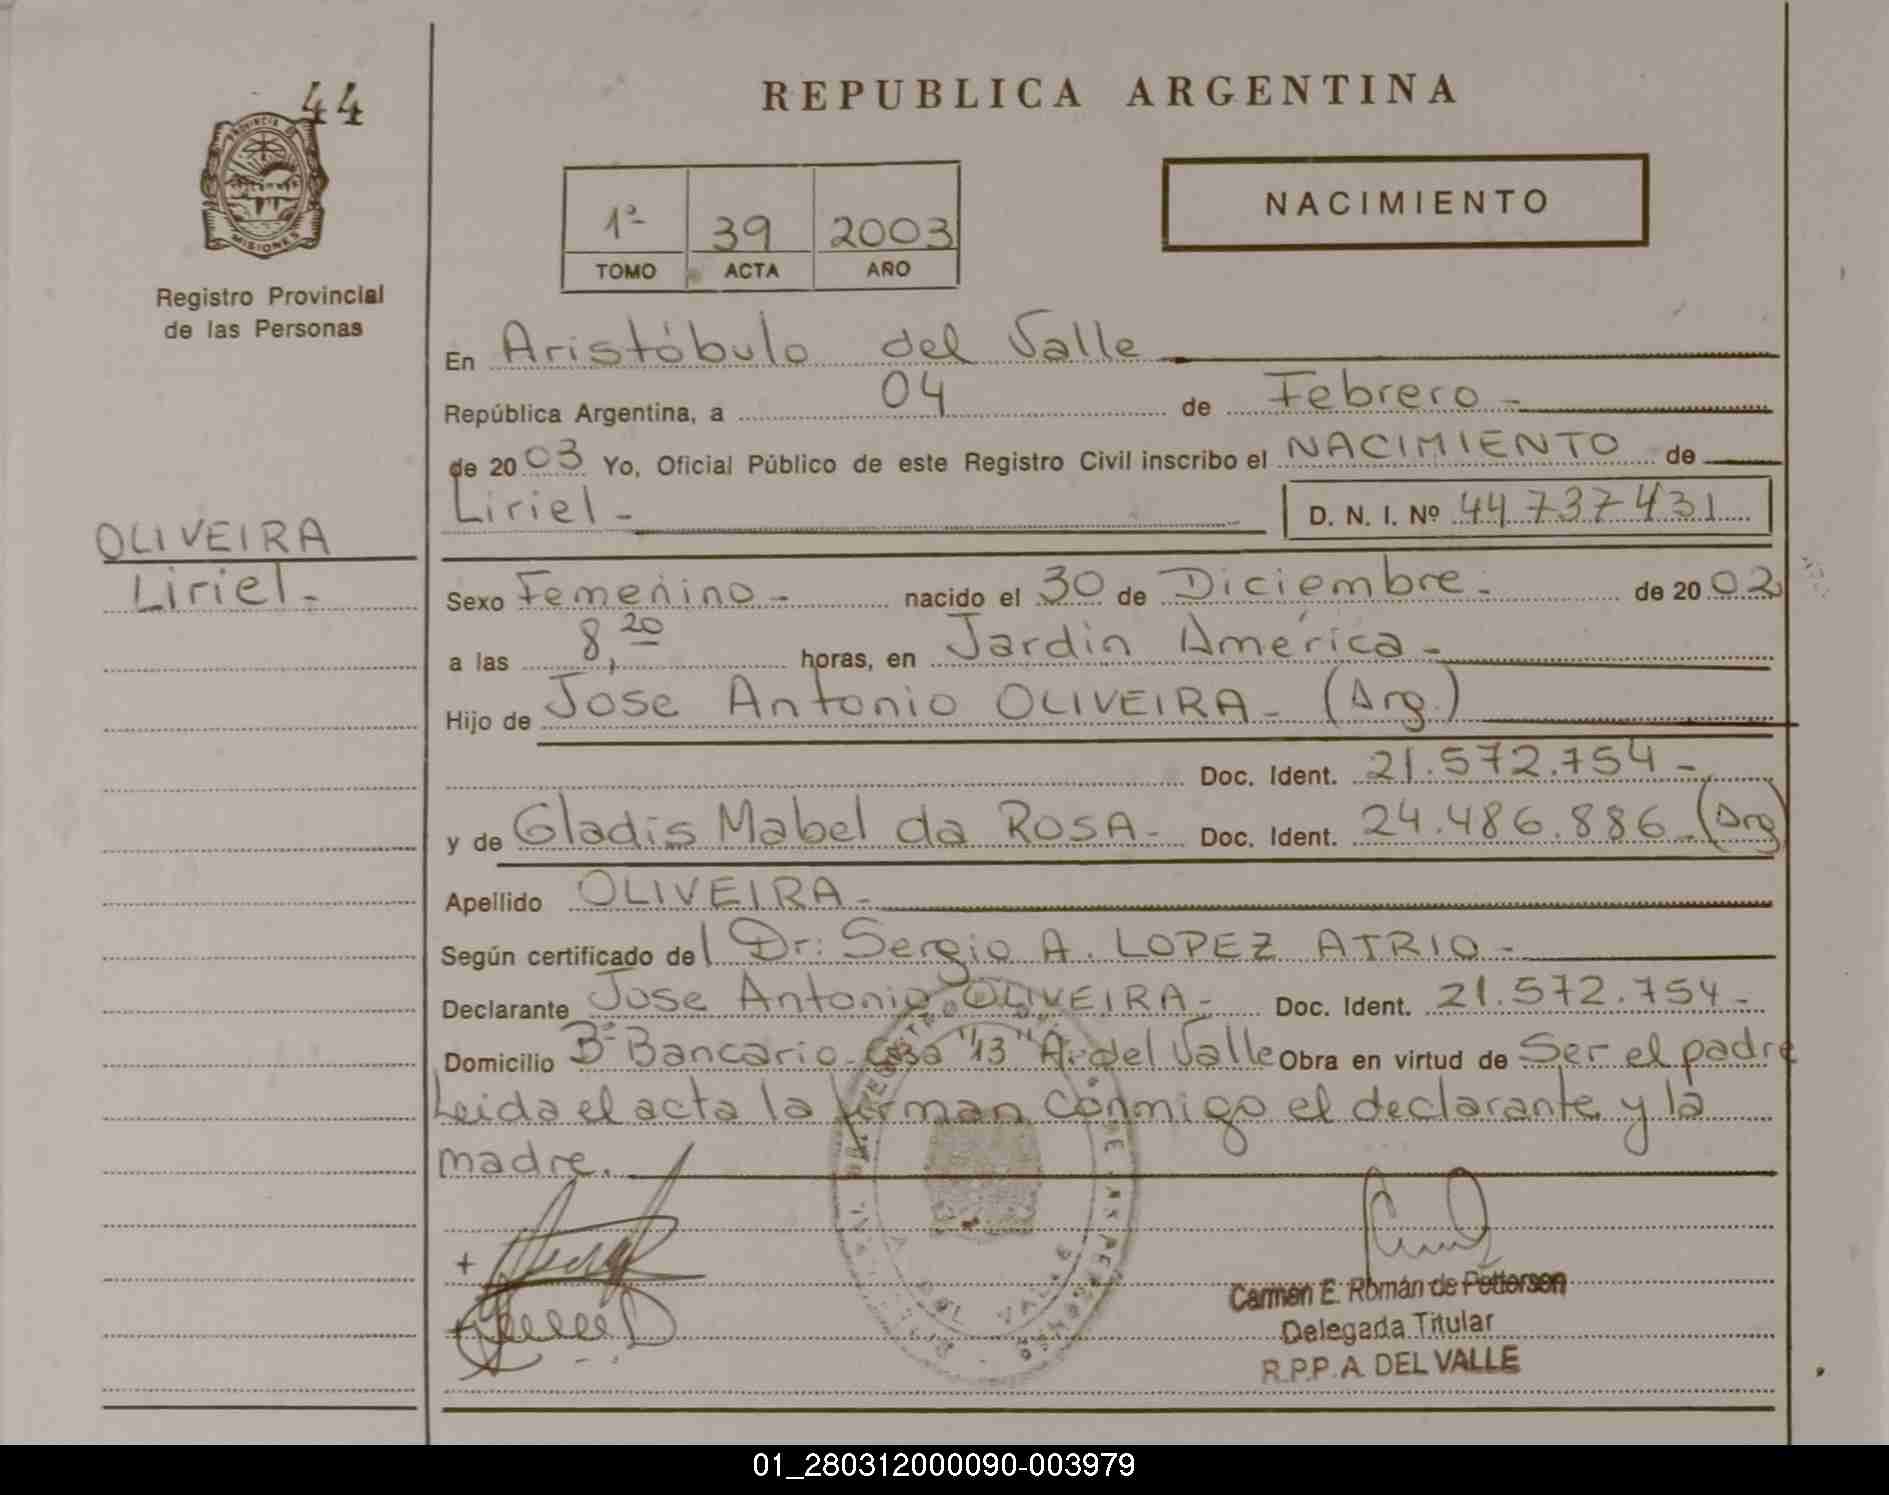 44
PROVINCIA DE
MISIONES
Registro Provincial
de las Personas
OLIVEIRA
Liriel.-
REPUBLICA ARGENTINA
1º 39 2003
TOMO ACTA AÑO
NACIMIENTO
En Aristóbulo del Valle
República Argentina, a 04 de Febrero -
de 20 03 Yo, Oficial Público de este Registro Civil inscribo el NACIMIENTO de
Liriel - D. N. I. Nº 44.737.431
Sexo Femenino - nacido el 30 de Diciembre - de 20 02
a las 8,20 horas, en Jardín América -
Hijo de Jose Antonio OLIVEIRA - (Arg.)
Doc. Ident. 21.572.754 -
y de Gladis Mabel da ROSA - Doc. Ident. 24.486.886 (Arg)
Apellido OLIVEIRA -
Según certificado del Dr: Sergio A. LOPEZ ATRIO -
Declarante Jose Antonio OLIVEIRA - Doc. Ident. 21.572.754 -
Domicilio Bº Bancario Casa "13" A. del Valle Obra en virtud de Ser el padre
Leida el acta la firman conmigo el declarante y la
madre.
Carmen E. Román de Pettersen
Delegada Titular
R.P.P. A. DEL VALLE
01_280312000090-003979